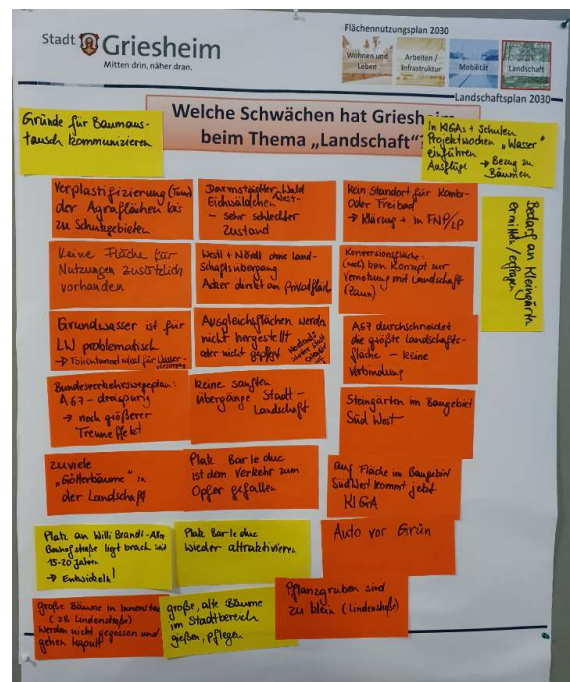 Stadt Griesheim
Mitten drin, näher dran.
Flächennutzungsplan 2030
Wohnen und
Leben
Arbeiten /
Infrastruktur
Mobilität
Landschaft
Landschaftsplan 2030
Welche Schwächen hat Griesheim
beim Thema „Landschaft"?
Gründe für Baumaus-
tausch kommunizieren
In KIGAs + Schulen
Projektwochen „Wasser"
einführen
Ausflüge → Bezug zu
Bäumen
Bedarf an Kleingärten
ermitteln/erfragen
Verplastifizierung
der Agrarflächen bis
zu Schutzgebieten
Darmstädter Wald
Eichwäldchen West-
- sehr schlechter
Zustand
Kein Standort für Kombi-
oder Freibad
→ Klärung + in FNP/LP
Keine Fläche für
Nutzungen zusätzlich
vorhanden
Westl + Nördl ohne Land-
schaftsübergang
Acker direkt an Privatfläch
Konversionsfläche:
(noch) kein Konzept zur
Vernetzung mit Landschaft
(Zaun)
Grundwasser ist für
LW problematisch
→ Folientunnel ideal für Wasser-
Ausgleichsflächen werden
nicht hergestellt
oder nicht gepflegt
A67 durchschneidet
die größte Landschafts-
fläche - keine
Verbindung
Bundesverkehrswegeplan:
A67 - dreispurig
→ noch größerer
Trenneffekt
keine sanften
Übergänge Stadt -
Landschaft
Steingärten im Baugebiet
Süd West
zuviele
„Götterbäume" in
der Landschaft
Platz Bar le duc
ist dem Verkehr zum
Opfer gefallen
auf Fläche im Baugebiet
SüdWest kommt jetzt
KIGA
Platz an Willi Brandt-Allee
Bahnhofstraße liegt brach seit
15-20 Jahren
→ Entwickeln!
Platz Bar le duc
Wieder attraktivieren
Auto vor Grün
große Bäume in Innenstadt
(z.B. Lindenstraße)
werden nicht gegossen und
gehen kaputt
große, alte Bäume
im Stadtbereich
gießen, pflegen
Pflanzgruben sind
zu klein (Lindenstraße)